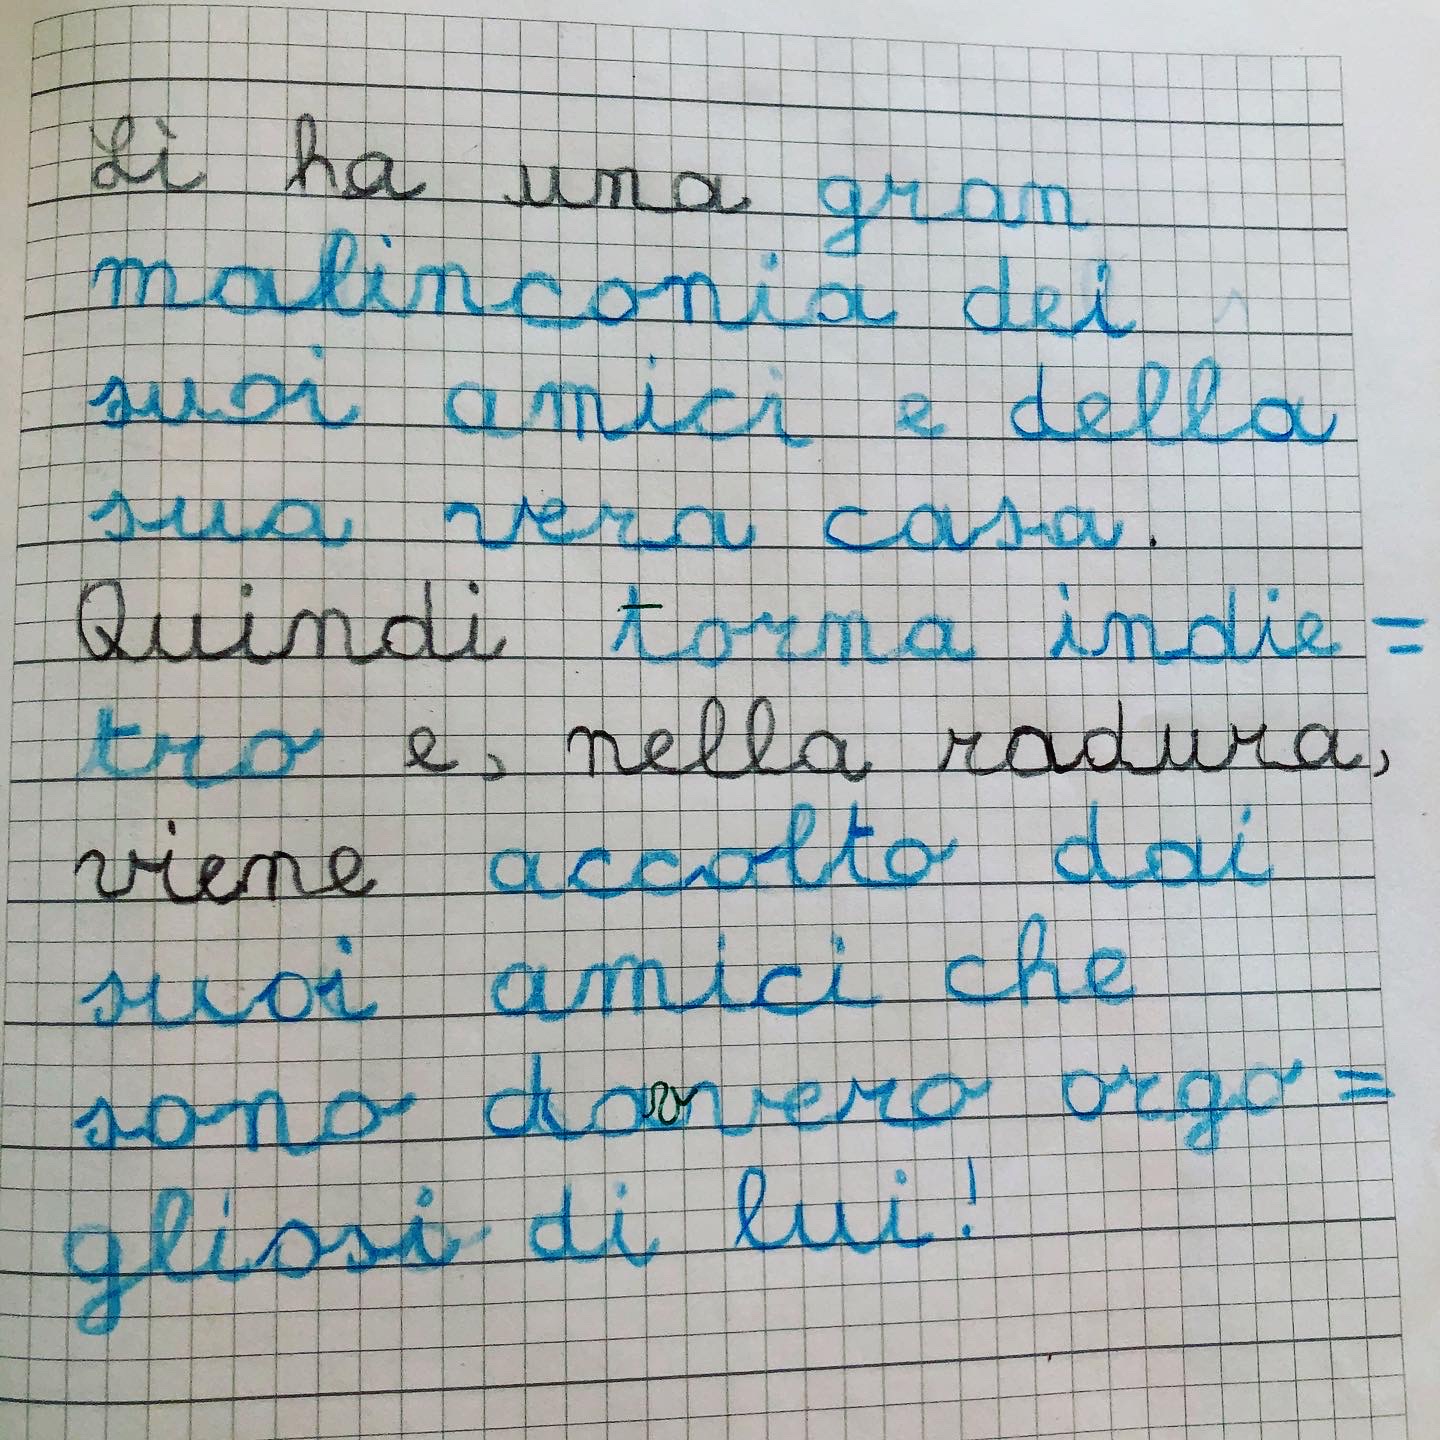 Lì ha una gran
malinconia dei
suoi amici e della
sua vera casa.
Quindi torna indie=
tro e, nella radura,
viene accolto dai
suoi amici che
sono davvero orgo=
gliosi di lui!